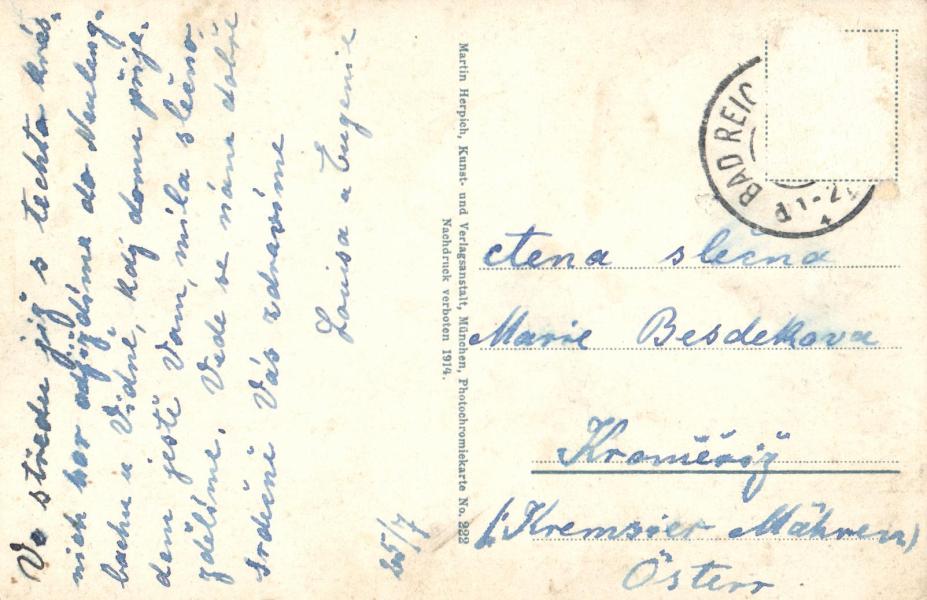 Ve středu již s těchto krás-
nich hor odjíždíme do Neuleng-
bachu u Vídně, kdy domu přije-
dem ještě Vam, mila slečno,
zdělíme. Vede se nám dobře
srdečně Vás zdravíme
Louisa a Eugenie
25/7
Martin Herpich, Kunst- und Verlagsanstalt, München, Photochromiekarte No. 222
Nachdruck verboten 1914.
BAD REIC
ctena slečna
Marie Besdekova
Kroměříž
(Kremsier Mähren)
Österr